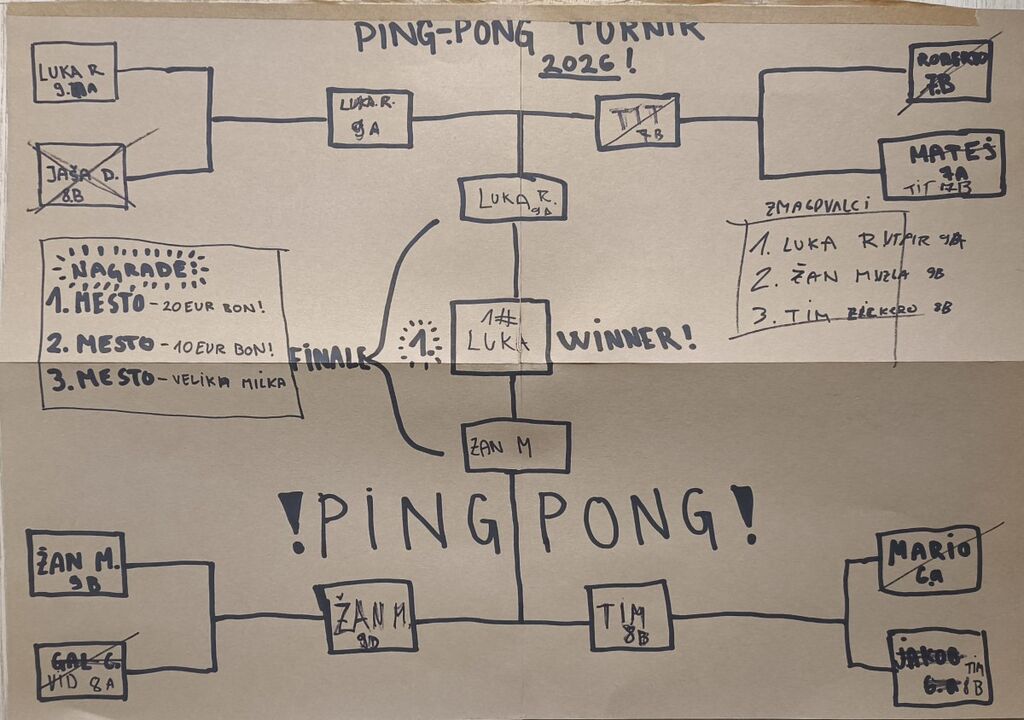 PING-PONG TURNIR
2026!
LUKA R
9.A
JAŠA D.
8.B
LUKA R.
9A
TIT
7B
ROBERTO
7.B
MATEJ
7A
TIT 7B
LUKA R.
9A
ZMAGOVALCI
1. LUKA 9A
2. ŽAN MUZGA 9B
3. TIM 8B
NAGRADE:
1. MESTO - 20 EUR BON!
2. MESTO - 10 EUR BON!
3. MESTO - VELIKA MILKA
FINALE
1.
1#
LUKA
WINNER!
ŽAN M
!PING PONG!
ŽAN M.
9B
GAL G.
VID 8A
ŽAN M.
TIM
8B
MARIO
6.A
JAKOB TIM
6.A 8B